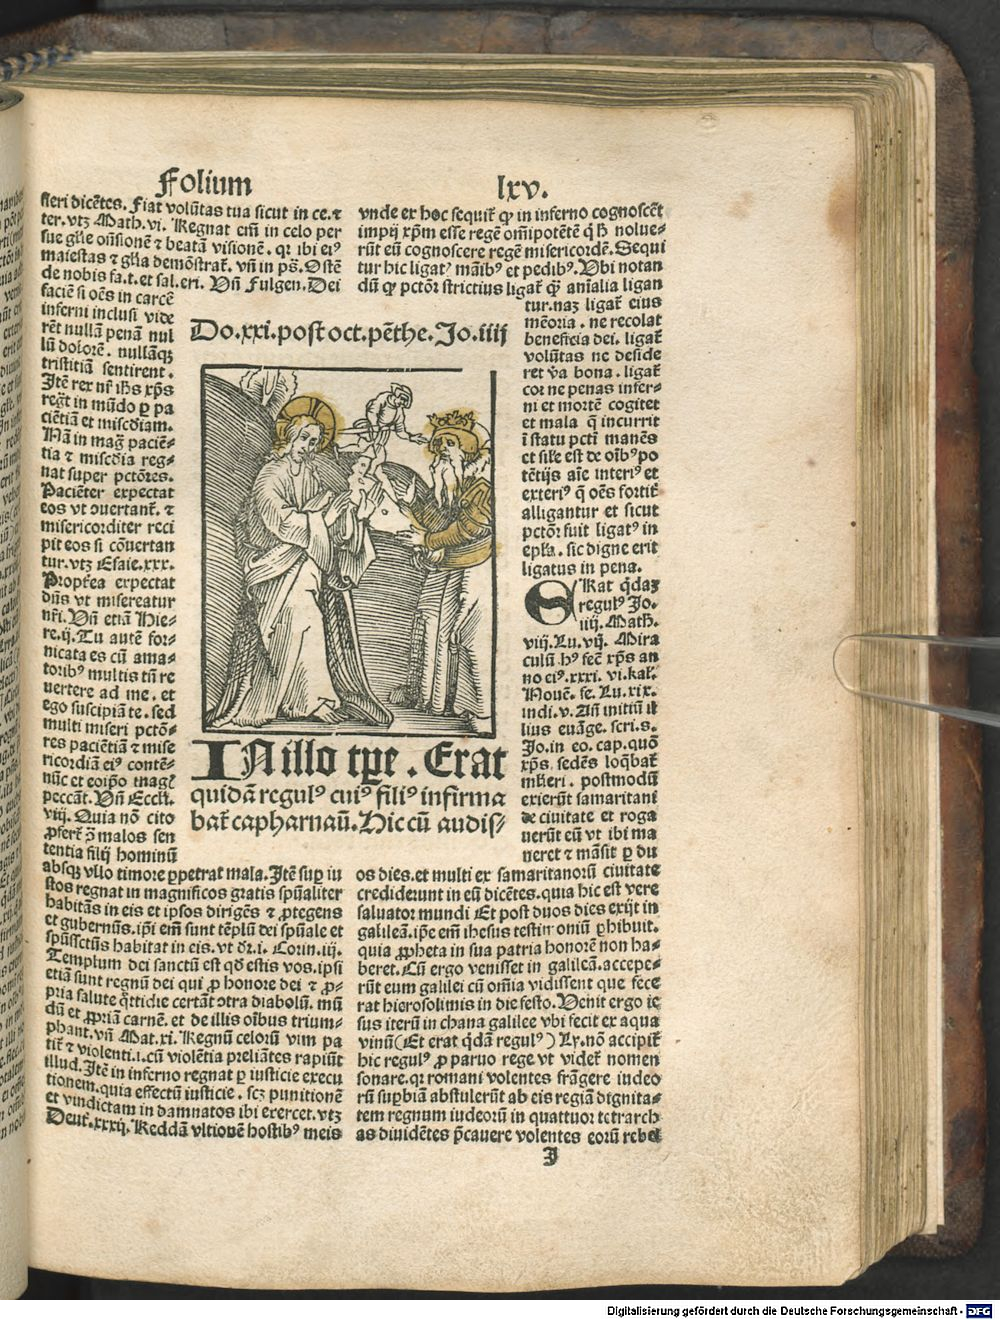 Folium lxv.
fieri dicētes. Fiat volūtas tua sicut in ce. ⁊
ter. vtꝫ Math. vi. Regnat em̄ in celo per
sue gl̄ie oſtēsionē ⁊ beatā visionē. qꝛ ibi eiꝰ
maiestas ⁊ gl̄ia demōstrat̄. vn̄ in ps̄. Ostē
de nobis fa. t. et sal. eri. Vn̄ Fulgen. Dei
faciē si oēs in carcē
inferni inclusi vide
rēt nullā penā nul
lū dolorē. nullāqꝫ
tristitiā sentirent.
Itē rex nr̄ ihs xp̄s
reḡt in mūdo ꝑ pa
ciētiā et miscdiam.
Nā in maḡ paciē-
tia ⁊ miscdia reg-
nat super pctōres.
Paciēter expectat
eos vt ↄuertant̄. ⁊
misericorditer reci
pit eos si cōuertan
tur. vtꝫ Esaie. xxx.
Propt̄ea expectat
dn̄s vt misereatur
nr̄i. Vn̄ etiā Hie-
re. ij. Tu autē for-
nicata es cū ama-
toribꝰ multis tn̄ re
uertere ad me. et
ego suscipiā te. sed
multi miseri pctō-
res paciētiā ⁊ mise
ricordiā eiꝰ contē-
nūc et eoip̄o maḡ
peccāt. Vn̄ Eccl̄i.
viij. Quia nō cito
ꝓfert̄ ↄ̄ malos sen
tentia filij hominū
absqꝫ vllo timore ꝑpetrat mala. Itē suꝑ iu
stos regnat in magnificos gratis spūaliter
habitās in eis et ipsos dirigēs ⁊ ꝓtegens
et gubernūs. ip̄i em̄ sunt tēplū dei spūale et
spūssctūs habitat in eis. vt dr̄. i. Corin. iij.
Templum dei sanctū est qd̄ estis vos. ipsi
etiā sunt regnū dei qui ꝓ honore dei ⁊ ꝓ-
pria salute q̄ttidie certāt ↄtra diabolū. mū
dū et ꝓpriā carnē. et de illis oībus trium-
phant. vn̄ Mat. xi. Regnū celorū vim pa
tit̄ ⁊ violenti. i. cū violētia preliātes rapiūt
illud. Itē in inferno regnat ꝑ iusticie execu
tionem. quia effectū iusticie. scꝫ punitionē
et vindictam in damnatos ibi exercet. vtꝫ
Deut̄. xxxij. Reddā vltionē hostibꝰ meis
vnde ex hoc sequit̄ ꝙ in inferno cognoscēt
impij xp̄m esse regē om̄ipotētē q̄ h̄ nolue-
rūt eū cognoscere regē misericordē. Sequi
tur hic ligatꝭ māibꝰ et pedibꝰ. Vbi notan
dū ꝙ pctōr strictius ligat̄ ꝙ̄ aīalia ligan
tur. naꝫ ligat̄ eius
mēoria. ne recolat
beneficia dei. ligat̄
volūtas ne deside
ret v̄a bona. ligat̄
cor ne penas infer-
ni et mortē cogitet
et mala q̄ incurrit
ī statu pcti manēs
et sil̄e est de oībꝰ po
tētijs aīe interiꝰ et
exteriꝰ q̄ oēs fortit̄
alligantur et sicut
pctōr fuit ligatꝰ in
ep̄la. sic digne erit
ligatus in pena.
Do. xxi. post oct. pēthe. Jo. iiij
IN illo tp̄e. Erat
quidā regulꝰ cuiꝰ filiꝰ infirma
bat̄ capharnaū. Hic cū audis-
ERat q̄daꝫ
regulꝰ Jo.
iiij. Math.
viij. Lu. vij. Mira
culū hꝰ fec̄ xp̄s an
no eiꝰ. xxxi. vi. kal.
Nouē. fe. Lu. xix.
indi. v. An̄ initiū il
lius euāge. scri. s.
Jo. in eo. cap. quō
xp̄s sedēs loq̄bat̄
ml̄ieri. postmodū
exierūt samaritani
de ciuitate et roga
uerūt eū vt ibi ma
neret ⁊ māsit ꝑ du
os dies. et multi ex samaritanorū ciuitate
crediderunt in eū dicētes. quia hic est vere
saluator mundi Et post duos dies exijt in
galileā. ip̄e em̄ ihesus testimoniū ꝑhibuit.
quia ꝓpheta in sua patria honorē non ha-
beret. Cū ergo venisset in galileā. accepe-
rūt eum galilei cū om̄ia vidissent que fece
rat hierosolimis in die festo. Venit ergo ie
sus iterū in chana galilee vbi fecit ex aqua
vinū (Et erat q̄dā regulꝰ) Ly. nō accipit̄
hic regulꝰ ꝓ paruo rege vt videt̄ nomen
sonare. qꝛ romani volentes frāgere iudeo
rū suꝑbiā abstulerūt ab eis regiā dignita-
tem regnum iudeorū in quattuor tetrarch
as diuidētes p̄cauere volentes eorū rebel
I
Digitalisierung gefördert durch die Deutsche Forschungsgemeinschaft - DFG